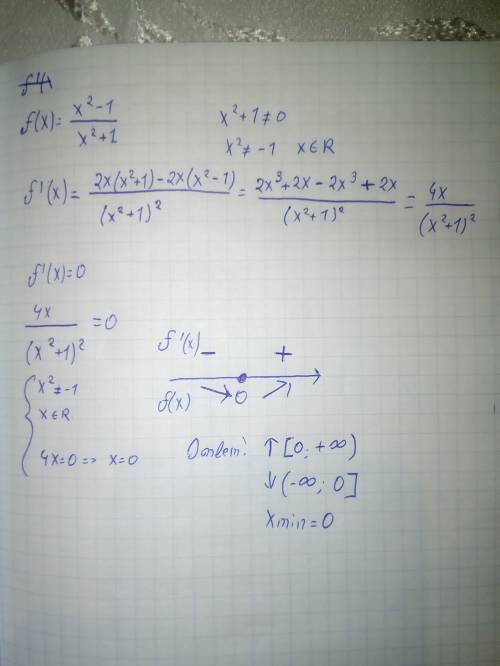 f(x)= x²-1 / x²+1
x²+1≠0
x²≠-1 x∈R
f'(x)= 2x(x²+1)-2x(x²-1) / (x²+1)² = 2x³+2x-2x³+2x / (x²+1)² = 4x / (x²+1)²
f'(x)=0
4x / (x²+1)² =0
{ x²≠-1
x∈R
4x=0=> x=0
f'(x) - +
f(x) ↘ 0 ↗
Ответ: ↑ [0; +∞)
↓ (-∞; 0]
xmin=0